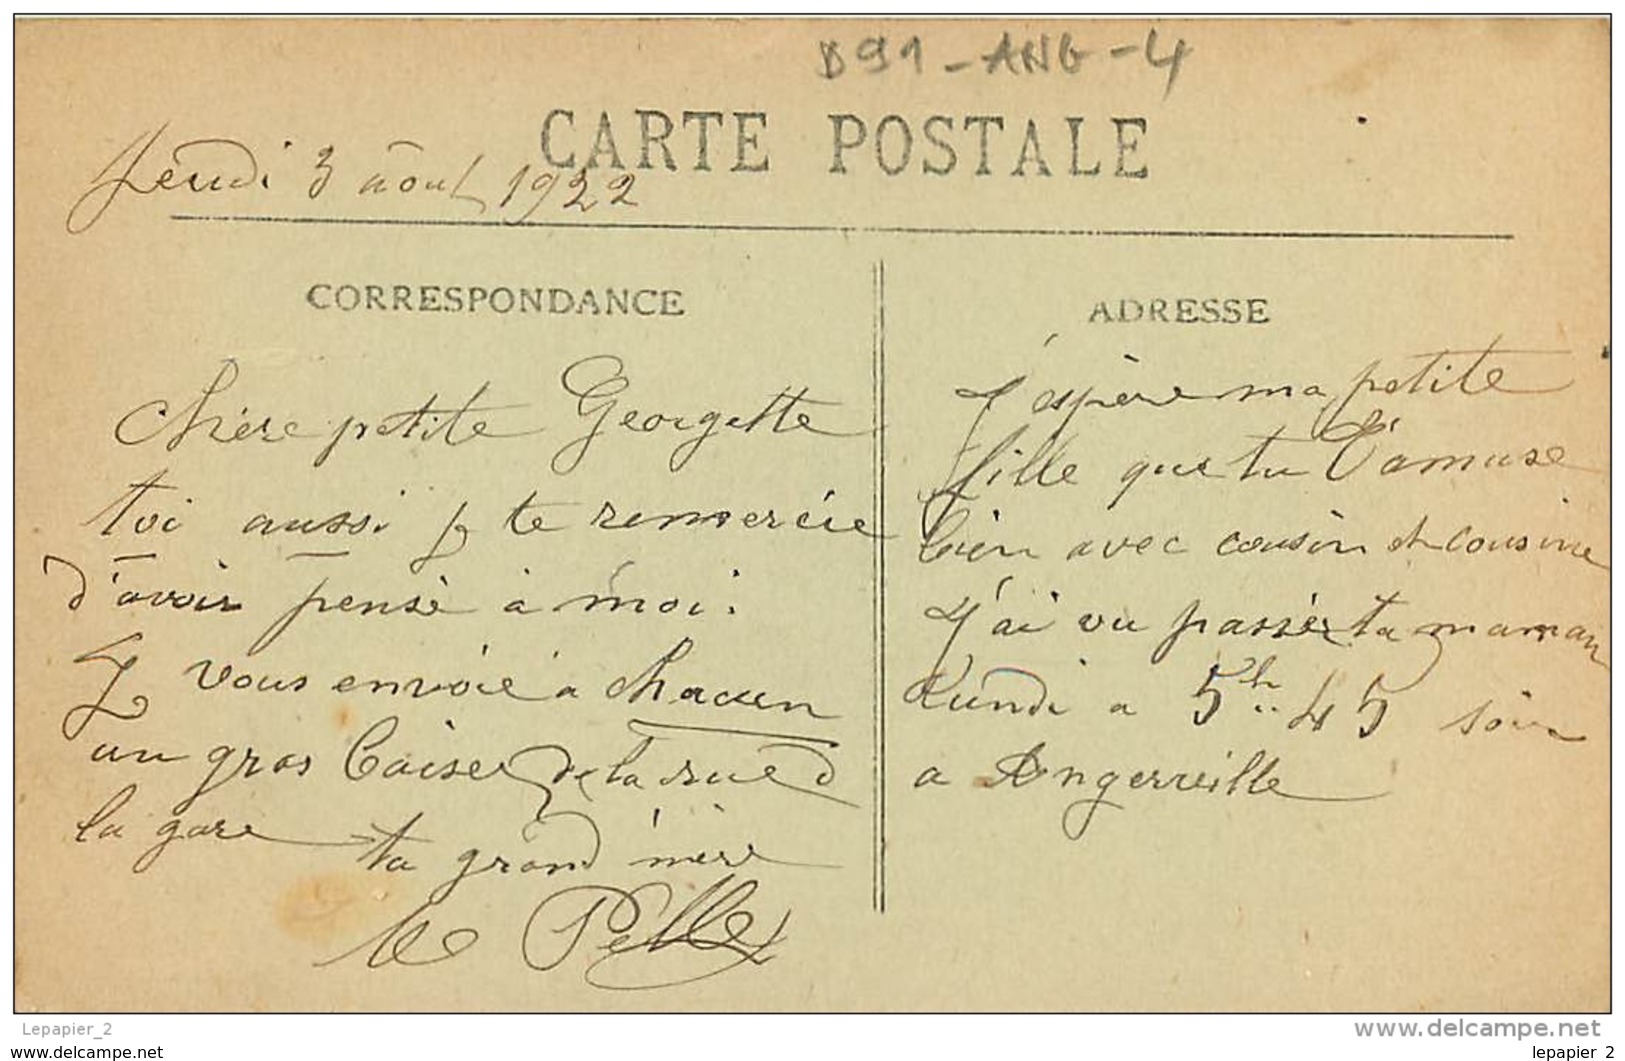 B91-ANG-4
CARTE POSTALE
Jeudi 3 août 1922
CORRESPONDANCE
Chère petite Georgette
toi aussi je te remercie
d'avoir pensé à moi.
Je vous envoie à chacun
un gros baiser de la rue d
la gare ta grand'mère
Pelle
ADRESSE
J'espère ma petite
fille que tu t'amuse
bien avec cousin et cousine
J'ai vu passer ta maman
Lundi a 5h 45 soir
a Angerville
Lepapier_2
www.delcampe.net
lepapier_2
lepapier_2